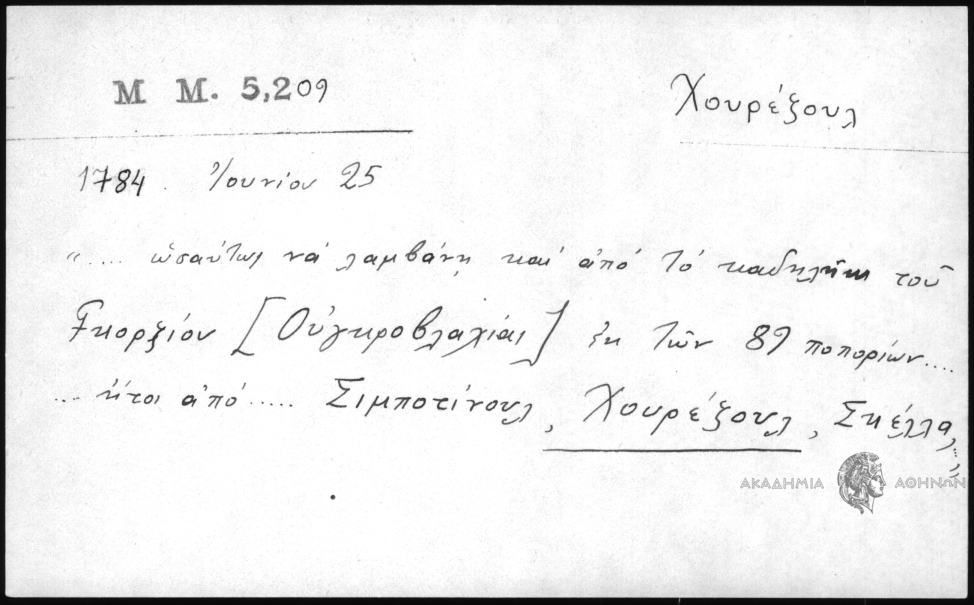 M M. 5,209
Χουρέζουλ
1784. Ἰουνίου 25
".... ὡσαύτως νά λαμβάνῃ καί ἀπό τό καδηλήκι τοῦ
Γκορζίου [Οὑγκροβλαχίας] ἐκ τῶν 89 ποποριῶν....
... ἤτοι ἀπό..... Σιμποτίνουλ, Χουρέζουλ, Σκέλλα,...."
ΑΚΑΔΗΜΙΑ ΑΘΗΝΩΝ